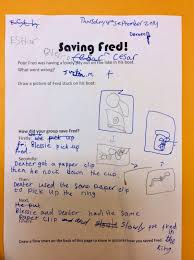 Thursday 4th September 2014
Esther
Dexter
Saving Fred!
Cesar
Poor Fred was having a lovely day out on the lake in his boat.
What went wrong?
Draw a picture of Fred stuck on his boat:
How did your group save Fred?
Firstly: we pick up
Blasie pick up
fred.
Secondly:
Dexter got a papper clip
then he nock down the cup
Then:
Dexter used the same papper clip
to Pick up the ring
Next:
the put
Blasie and Dexter had the same
Paper clip and slowly put fred
in the
ring
Draw a flow chart on the back of this page to show in pictures how you saved Fred.